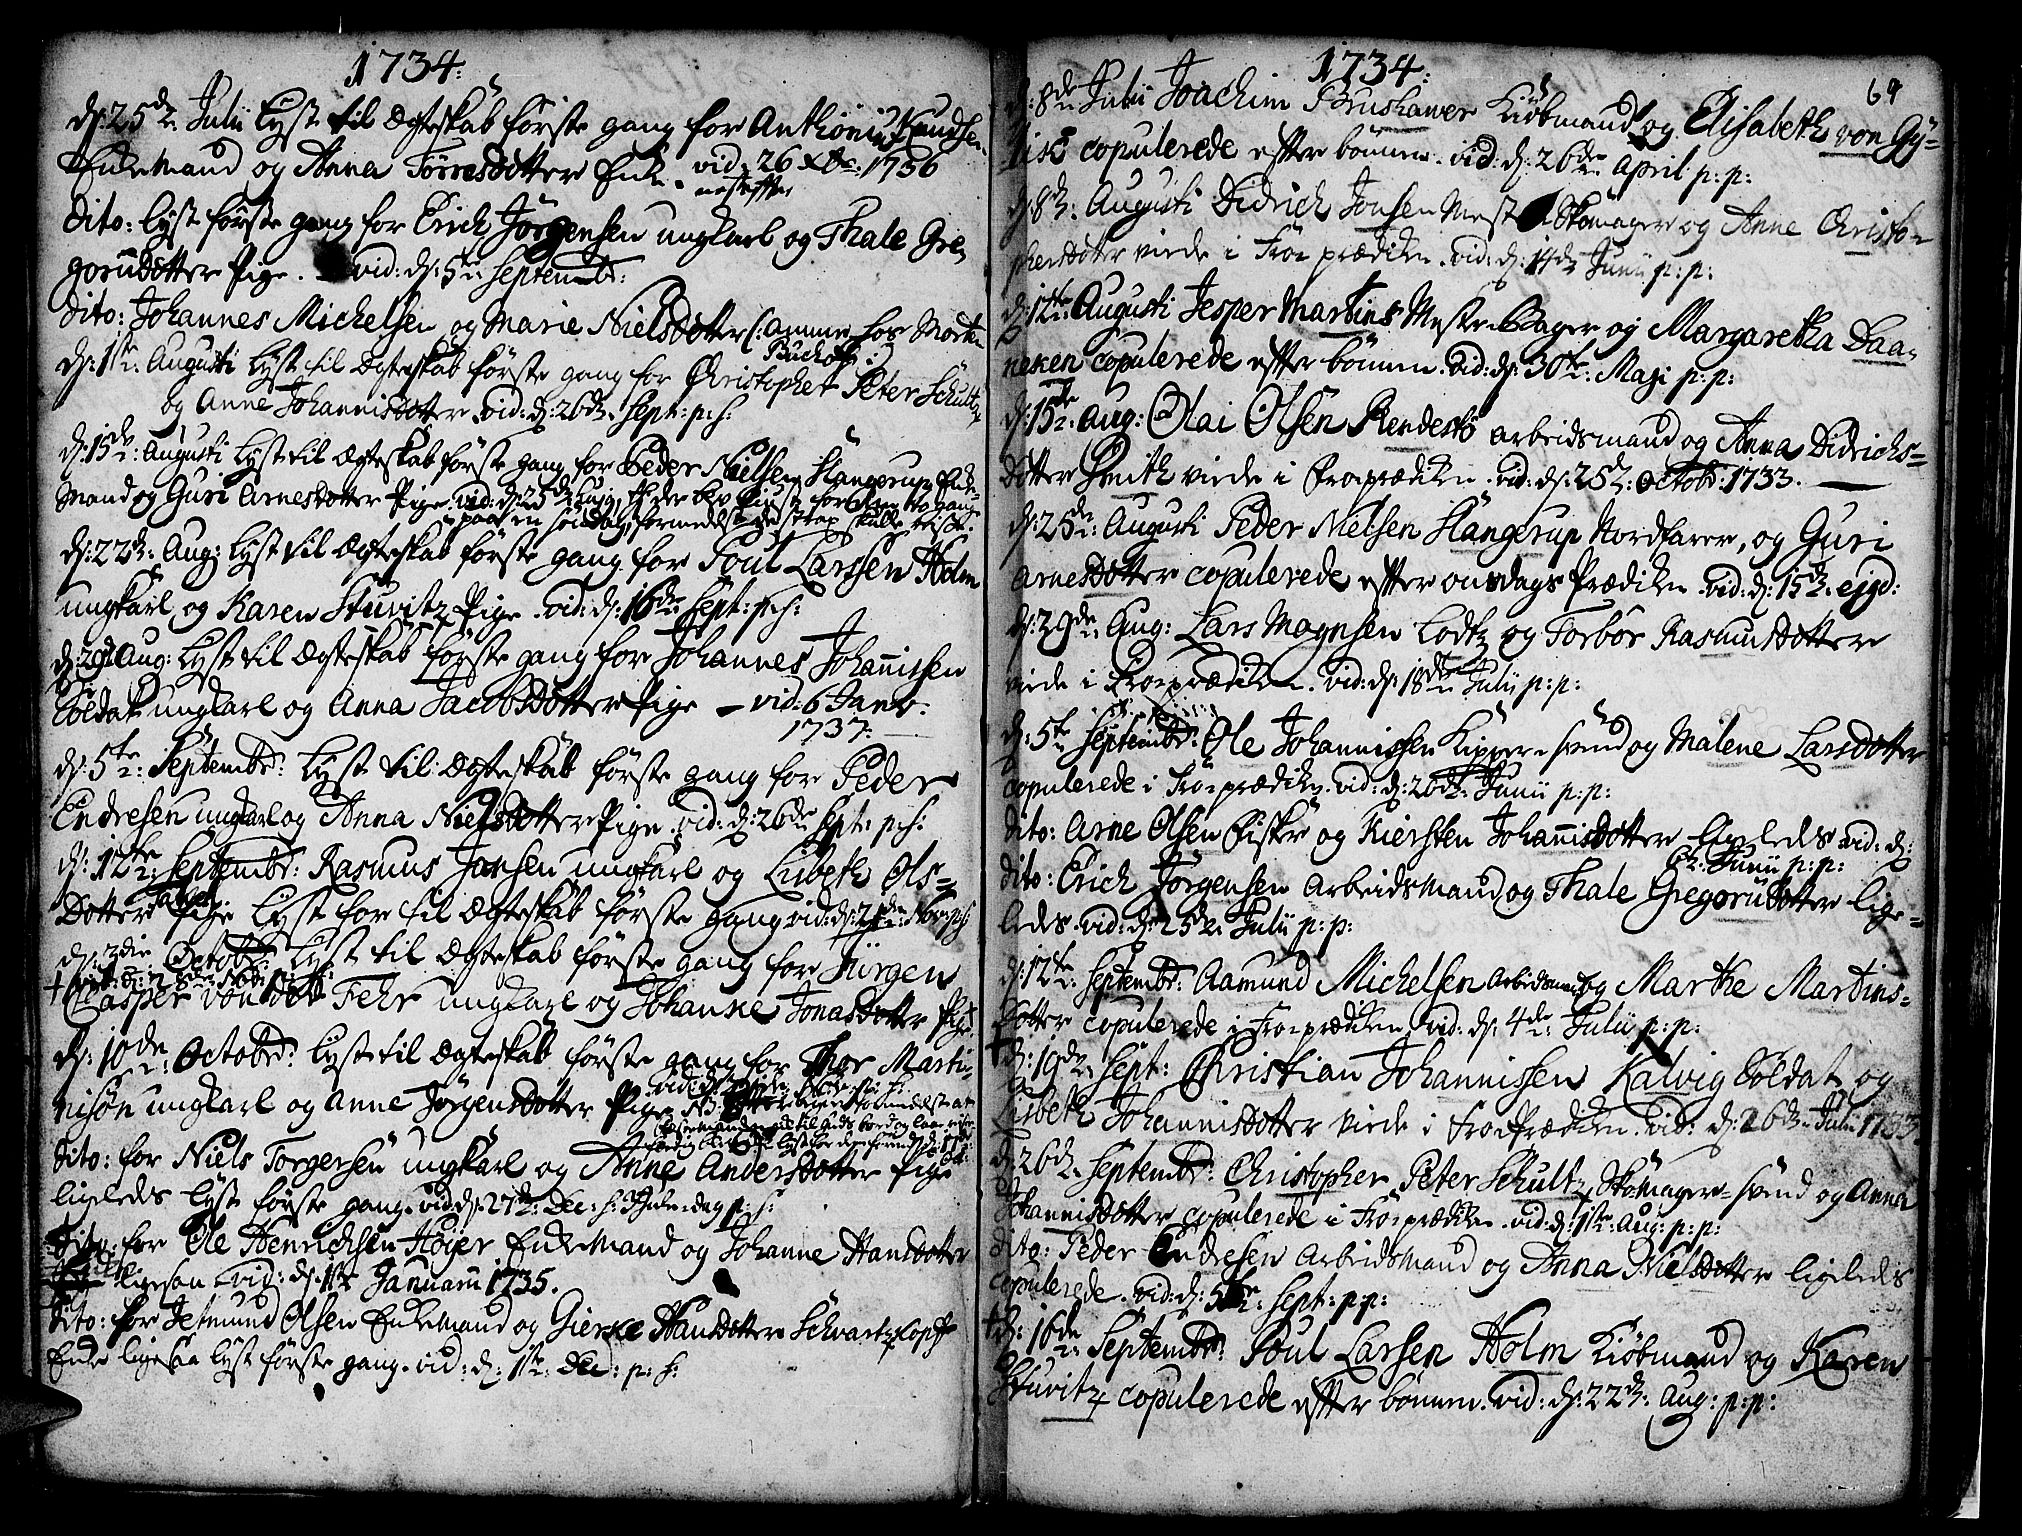 1734.
d: 25de Julij lyst til Ægteskab första gang for Anthonius Knudsen
Enkemand og Anna Torresdotter Enke. vid: 26 Xbr: 1736
nestefter
Dito: lyst förste gang for Erich Jörgensen ungkarl og Thale Gre,
gorudotter Pige. vid: d: 5te Septembr:
Dito: Johannes Michelsen og Marie Nielsdotter (: Amme hos Morten
Buchol :)
d: 1ste Augusti lyst til Ægteskab förste gang for Christopher Peter Schultz
og Anne Johannisdotter. vid: d: 26de Sept: p: h:
d: 15de Augusti lyst til Ægteskab förste gang for Peder Nielsen Slangerup Enke-
mand og Guri Arnesdotter Pige. vid: d: 25de Aug.
d: 22de Aug: lyst til Ægteskab förste gang for Poul Larssen Holm
ungkarl og Karen Stuvitz Pige. vid: d: 16de Sept: p: h:
d: 29de Aug: lyst til Ægteskab förste gang for Johannes Johannissen
Soldat ungkarl og Anna Jacobsdotter Pige – vid: 6 Janv:
1737:
d: 5te Septembr: lyst til Ægteskab förste gang for Peder
Endresen ungkarl og Anna Nielsdotter Pige. vid: d: 26de Sept: p: h:
d: 12te Septembr: Rasmus Jansen ungkarl og Lisbeth Ols-
dotter Pige lyst for til Ægteskab förste gang vid: d: 21de Nov: p: h:
d: 3die Octobr: lyst til Ægteskab förste gang for Jürgen
† Casper von der Fehr ungkarl og Johanne Jonasdotter Pige
d: 10de Octobr: lyst til Ægteskab förste gang for Thor Marti-
nisön ungkarl og Anne Jörgensdotter Pige
Dito: for Niels Torgersen ungkarl og Anne Andersdotter Pige
ligeleds lyst förste gang. vid: d: 27de Dec: h: 3 Juledag p: h:
Dito: for Ole Henrichsen Höyer Enkemand og Johanne Hansdotter
ligesaa vid: d: 1ste Januarii 1735.
Dito: for Jetmund Olsen Enkemand og Gierke Hansdotter Schvartzkopff
Enke ligesaa lyst förste gang. vid: d: 1ste Dec: p: h:
1734.
69
d: 8de Julii Joachim Bruskawer Kiöbmand og Elisabeth von Gy-
copulerede effter bönnen. vid: d: 26de April p: p:
d: 8de Augusti Didrich Jonsen Mest. Skomager og Anne Christo-
phersdotter viede i Froprædiken. vid: d: 14de Junii p: p:
d: 12te Augusti Jesper Martins Mester Bager og Margaretha Daa-
neken copulerede effter bönnen. vid: d: 30te Maji p: p:
d: 15de Aug: Olai Olsen Rendestö arbeidsmand og Anna Didrichs-
dotter Smith viede i Froprædiken. vid: d: 25de Octobr: 1733.
d: 25de Augusti Peder Nielsen Slangerup Nordfarer, og Guri
Arnesdotter copulerede effter onsdags Prædiken. vid: d: 15de ejsd:
d: 29de Aug: Lars Mognsen Lodtz og Torbor Rasmusdotter
viede i Froeprædiken. vid: d: 18de Julii p: p:
d: 5te Septembr: Ole Johannissen Kipper-svend og Malene Larsdotter
copulerede i Froeprædiken. vid: d: 26de Junii p: p:
Dito: Arne Olsen Fisker og Kiersten Johannisdotter ligeleds vid: d:
Junii p: p:
Dito: Erich Jörgensen Arbeidsmand og Thale Gregorudotter lige-
leds. vid: d: 25de Julii p: p:
d: 12te Septembr: Aamund Michelsen Arbeidsmand og Marthe Martins-
dotter copulerede i Froeprædiken. vid: d: 4de Julii p: p:
† d: 19de Sept: Christian Johannissen Kalvig Soldat og
Lisbeth Johannisdotter viede i Froeprædiken. vid: d: 26de Julii 1733.
d: 26de Septembr: Christopher Peter Schultz, Skomager-svend og Anna
Johannisdotter copulerede i Froeprædiken. vid: d: 1ste Aug: p: p:
Dito: Peder Endresen Arbeidsmand og Anna Nielsdotter ligeleds
copulerede. vid: d: 5te Sept: p: p:
† d: 16de Septembr: Poul Larsen Holm Kiöbmand og Karen
Stuvitz copulerede effter bönnen. vid: d: 22de Aug: p: p: